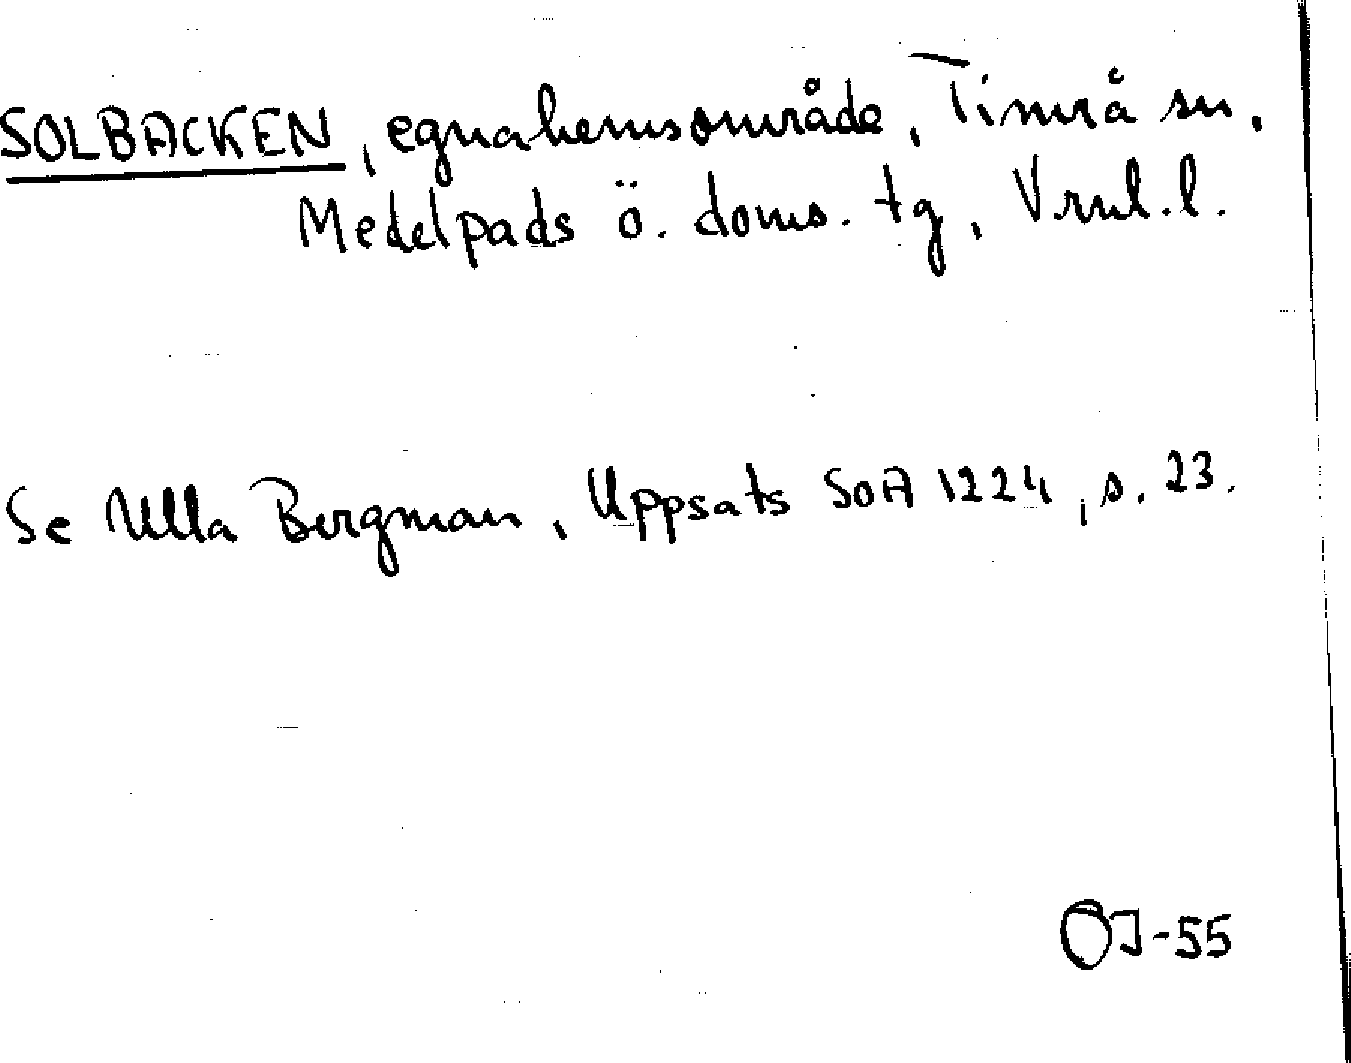 SOLBACKEN, egnahemsområde, Timrå sn,
Medelpads ö. doms. tg, Vrnl. l.
Se Ulla Bergman, Uppsats SOA 1224, s. 23.
ÖJ-55